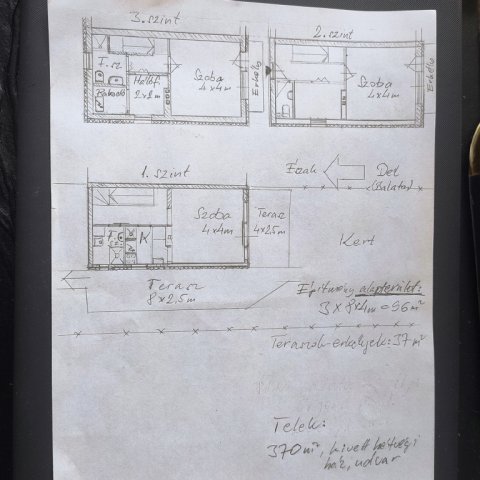 3. szint
2. szint
F. sz
Hálóf.
2x2 m
Szoba
4x4m
Erkély
Szoba
4x4m
Erkély
1. szint
Észak
Dél
(Balaton)
K
Szoba
4x4m
Terasz
4x2.5m
F.
K
Kert
Terasz
8x2.5m
Építmény alapterület:
3 x 8x4m = 96 m²
Teraszok-erkélyek: 37 m²
Telek:
370 m², kivett hétvégi
ház, udvar